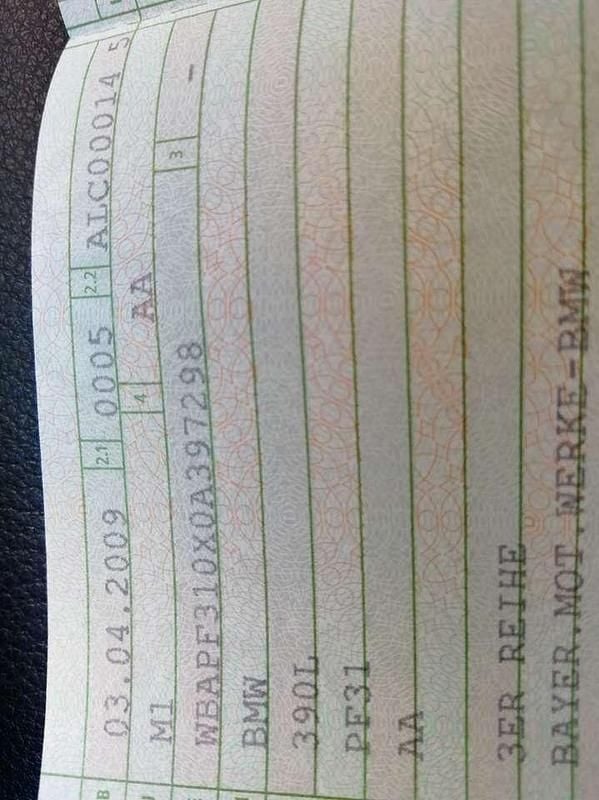 B 03.04.2009 2.1 0005 2.2 ALC00014 5
J M1 4 AA
WBAPF310X0A397298 3 -
BMW
390L
PF31
AA
3ER REIHE
BAYER.MOT.WERKE-BMW